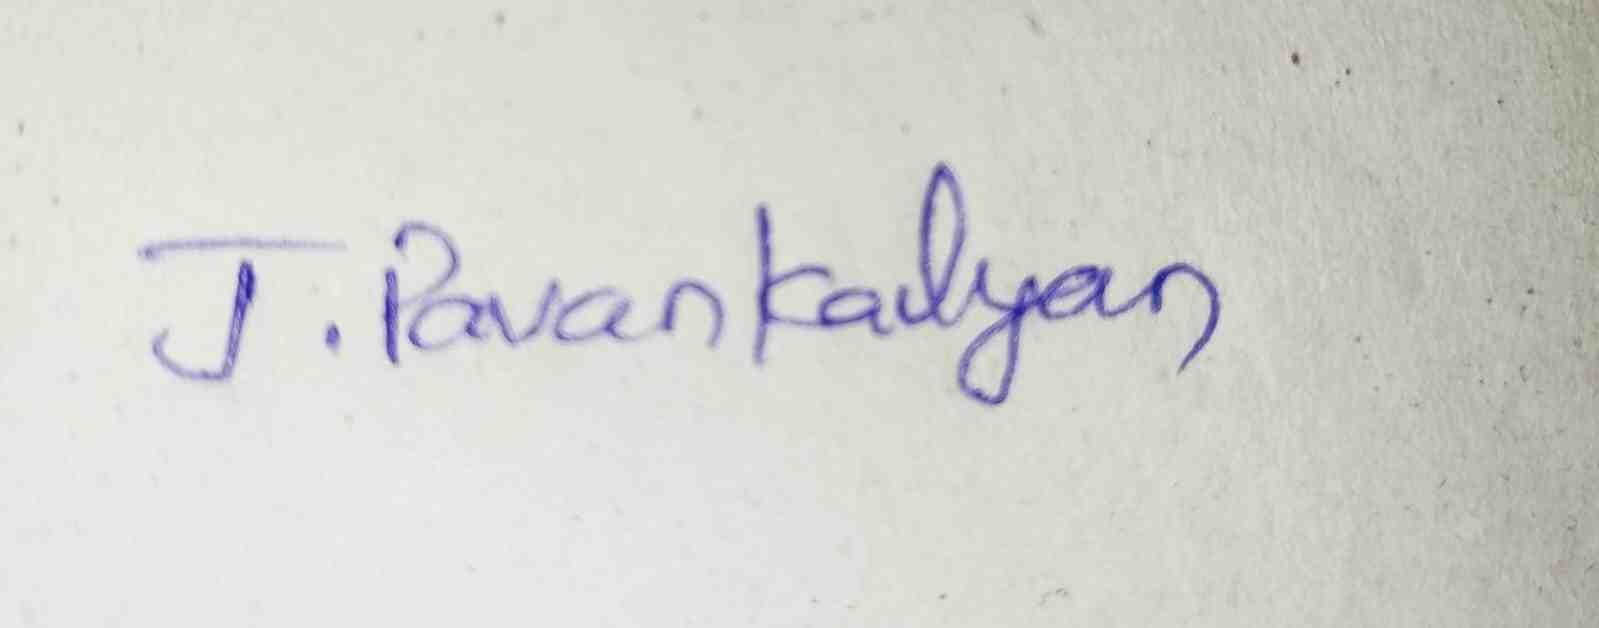 J. Pavankalyan